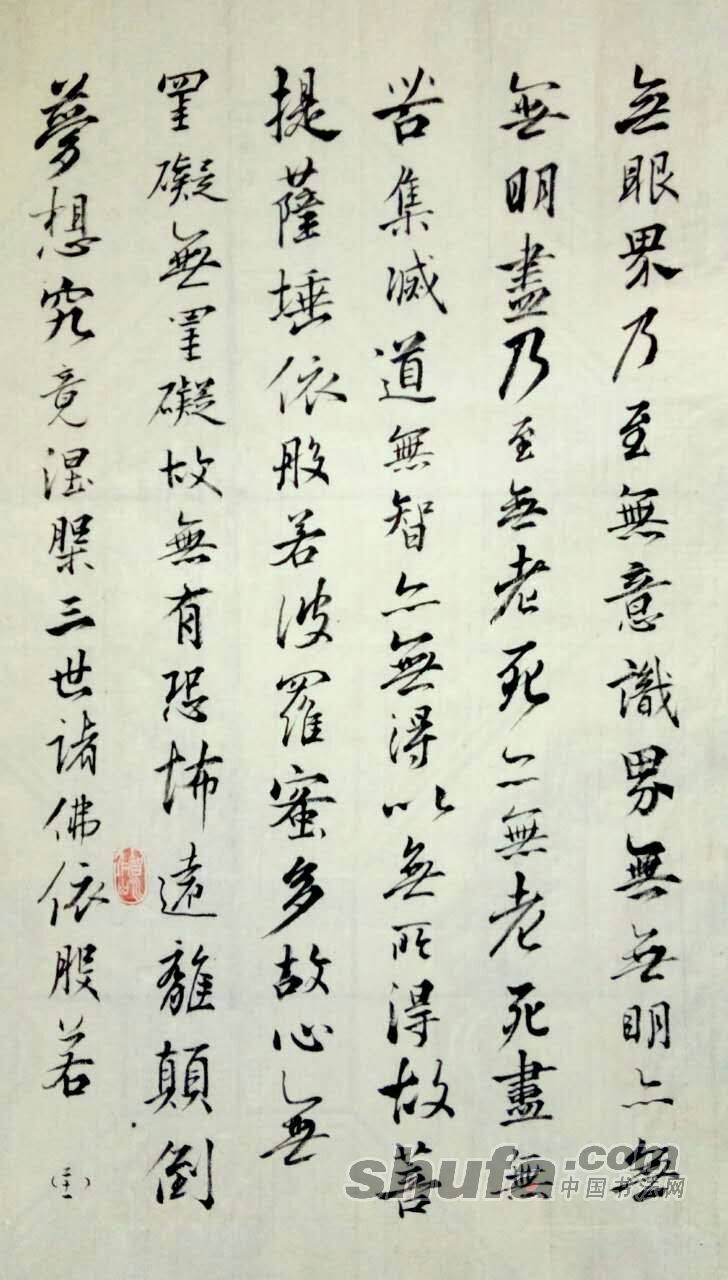 無眼界乃至無意識界無無明亦無
無明盡乃至無老死亦無老死盡無
苦集滅道無智亦無得以無所得故菩
提薩埵依般若波羅蜜多故心無
罣礙無罣礙故無有恐怖遠離顛倒
夢想究竟涅槃三世諸佛依般若
shufa.com
中国书法网